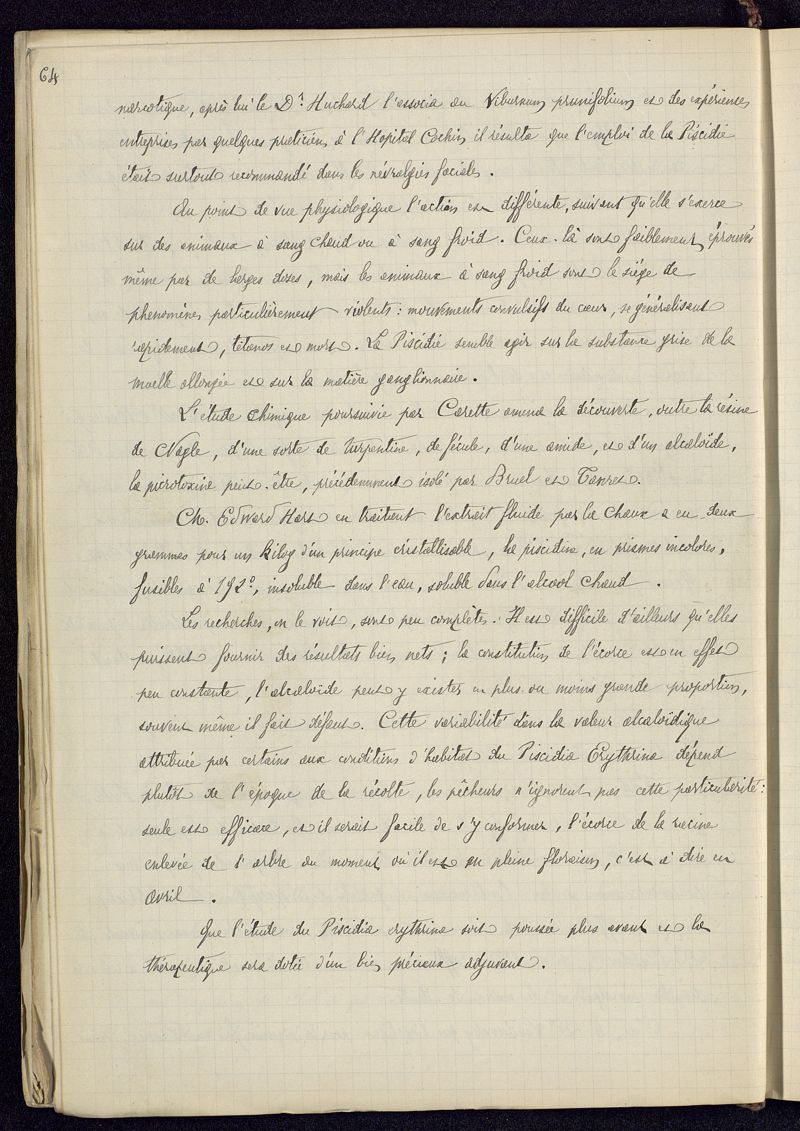 64
narcotique, après lui le Dr Huchard l'associa au Viburnum prunifolium et des expériences
entreprises par quelques praticiens à l'Hopital Cochin il résulta que l'emploi de la Piscidie
était surtout recommandé dans les névralgies faciales.
Au point de vue physiologique l'action est différente, suivant qu'elle s'exerce
sur des animaux à sang chaud ou à sang froid. Ceux-là sont faiblement éprouvés
même par de larges doses, mais les animaux à sang froid sont le siège de
phenomènes particulièrement violents : mouvements convulsifs du cœur, se généralisant
rapidement, tétanos et mort. La Piscidie semble agir sur la substance grise de la
moelle allongée et sur la matière ganglionnaire.
L'étude chimique poursuivie par Carette amena la découverte, outre la résine
de Nagle, d'une sorte de turpentine, de fécule, d'une amide, et d'un alcaloïde,
la picrotoxine peut-être, précédemment isolé par Bruel et Tanret.
Ch. Edward Hart en traitant l'extrait fluide par la chaux a eu deux
grammes pour un kilog d'un principe cristallisable, la piscidine, en prismes incolores,
fusibles à 192°, insoluble dans l'eau, soluble dans l'alcool chaud.
Les recherches, on le voit, sont peu complètes. Il est difficile d'ailleurs qu'elles
puissent fournir des résultats bien nets ; la constitution de l'écorce est en effet
peu constante, l'alcaloïde peut y exister en plus ou moins grande proportion,
souvent même il fait défaut. Cette variabilité dans la valeur alcaloïdique
attribuée par certains aux conditions d'habitat du Piscidia Erythrina dépend
plutôt de l'époque de la récolte, les pêcheurs n'ignorent pas cette particularité :
seule est efficace, et il serait facile de s'y conformer, l'écorce de la racine
enlevée de l'arbre au moment où il est en pleine floraison, c'est à dire en
avril.
Que l'étude du Piscidia erythrina soit poussée plus avant et la
thérapeutique sera dotée d'un bien précieux adjuvant.